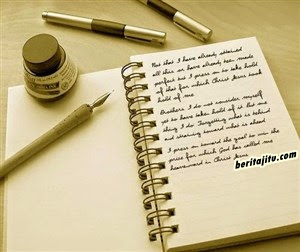 Not that I have already obtained
all this or have already been made
perfect but I press on to take hold
of that for which Christ Jesus took
hold of me.
Brothers I do not consider myself
yet to have taken hold of it. But one
thing I do: Forgetting what is behind
and straining toward what is ahead
I press on toward the goal to win the
prize for which God has called me
heavenward in Christ Jesus.
beritajitu.com